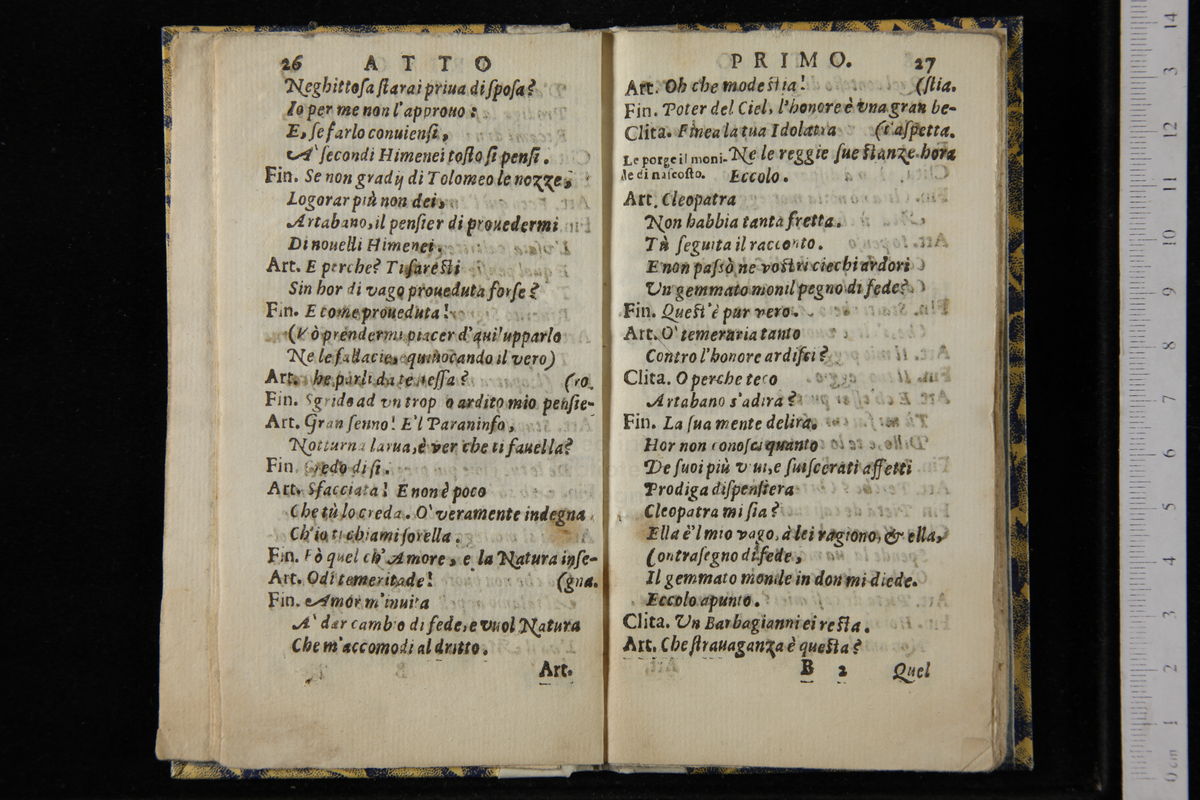 26 ATTO
Neghittosa starai priua di sposa?
Io per me non l'approuo:
E, se farlo conuiensi,
A' secondi Himenei tosto si pensi.
Fin. Se non gradij di Tolomeo le nozze,
Logorar più non dei,
Artabano, il pensier di prouedermi
Di nouelli Himenei.
Art. E perche? Ti faresti
Sin hor di vago proueduta forse?
Fin. E come proueduta!
(Vò prendermi piacer d'auilupparlo
Ne le fallacie, equinocando il vero)
Art. he parli da te stessa? (ro.
Fin. Sgrido ad vn trop o ardito mio pensie-
Art. Gran senno! E'l Paraninfo,
Notturna larua, è ver che ti fauella?
Fin. Credo di si.
Art. Sfacciata! E non è poco
Che tù lo creda. O' veramente indegna
Ch'io ti chiami sorella.
Fin. Fò quel ch'Amore, e la Natura inse-
Art. Odi temeritade! (gna.
Fin. Amor m'inuita
A' dar cambio di fede, e vuol Natura
Che m'accomodi al dritto.
Art.
PRIMO. 27
Art. Oh che modestia! (stia.
Fin. Poter del Ciel, l'honore è vna gran be-
Clita. Finea la tua Idolatra (t'aspetta.
Le porge il moni- Ne le reggie sue stanze hora
le di nascosto. Eccolo.
Art. Cleopatra
Non habbia tanta fretta.
Tù seguita il racconto.
E non passò ne vostri ciechi ardori
Un gemmato monil pegno di fede?
Fin. Quest'è pur vero.
Art. O' temeraria tanto
Contro l'honore ardisci?
Clita. O perche teco
Artabano s'adira?
Fin. La sua mente delira.
Hor non conosci quanto
De suoi più viui, e suiscerati affetti
Prodiga dispensiera
Cleopatra mi sia?
Ella è'l mio vago, à lei ragiono, & ella,
Contrasegno di fede,
Il gemmato monile in don mi diede.
Eccolo apunto.
Clita. Un Barbagianni ei resta.
Art. Che strauaganza è questa?
B 2 Quel
0 cm 1 2 3 4 5 6 7 8 9 10 11 12 3 14